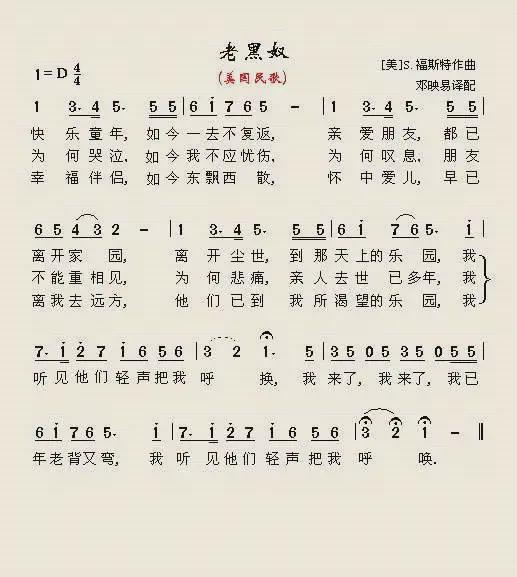 老黑奴
(美国民歌)
1=D 4/4
[美]S.福斯特作曲
邓映易译配
1 3· 4 5· 5 5 | 6 i 7 6 5 – | 1 3· 4 5· 5 5 |
快乐童年, 如今一去不复返, 亲爱朋友, 都已
为何哭泣, 如今我不应忧伤, 为何叹息, 朋友
幸福伴侣, 如今东飘西散, 怀中爱儿, 早已
6 5 4 3 2 – | 1 3· 4 5· 5 5 | 6 i 7 6 5· i |
离开家园, 离开尘世, 到那天上的乐园, 我
不能重相见, 为何悲痛, 亲人去世已多年, 我
离我去远方, 他们已到我所渴望的乐园, 我
7· i 2 7 i 6 5 6 | 3 2 1· 5 | 3 5 0 5 3 5 0 5 5 |
听见他们轻声把我呼换, 我来了, 我来了, 我已
6 i 7 6 5· i | 7· i 2 7 i 6 5 6 | 3 2 1 – ‖
年老背又弯, 我听见他们轻声把我呼唤.